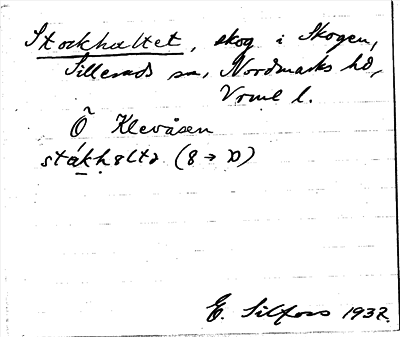 Stockhultet, skog i Skogen,
Silleruds sn, Nordmarks hd,
Vrml l.
Õ Klevåsen
sták̲ḥ8ltə (8→ɷ)
E. Silfors 1937.